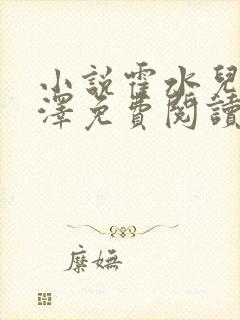 小說霍水兒
澤免費閱讀
糜嫵